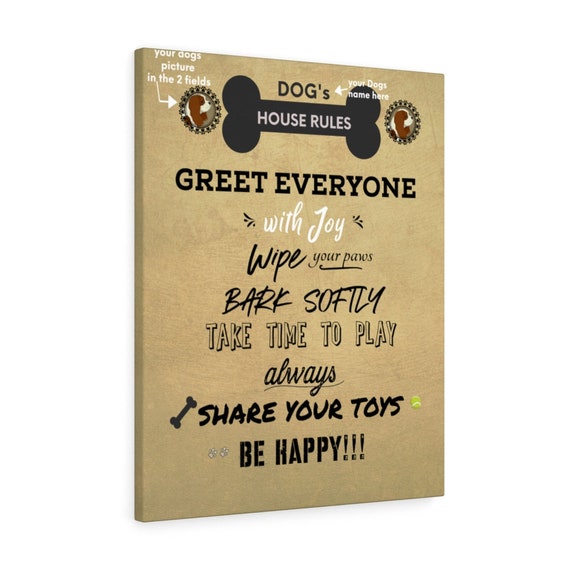 your dogs
picture
in the 2 fields
DOG's
your Dogs
name here
HOUSE RULES
GREET EVERYONE
with Joy
Wipe your paws
BARK SOFTLY
TAKE TIME TO PLAY
always
SHARE YOUR TOYS
BE HAPPY!!!